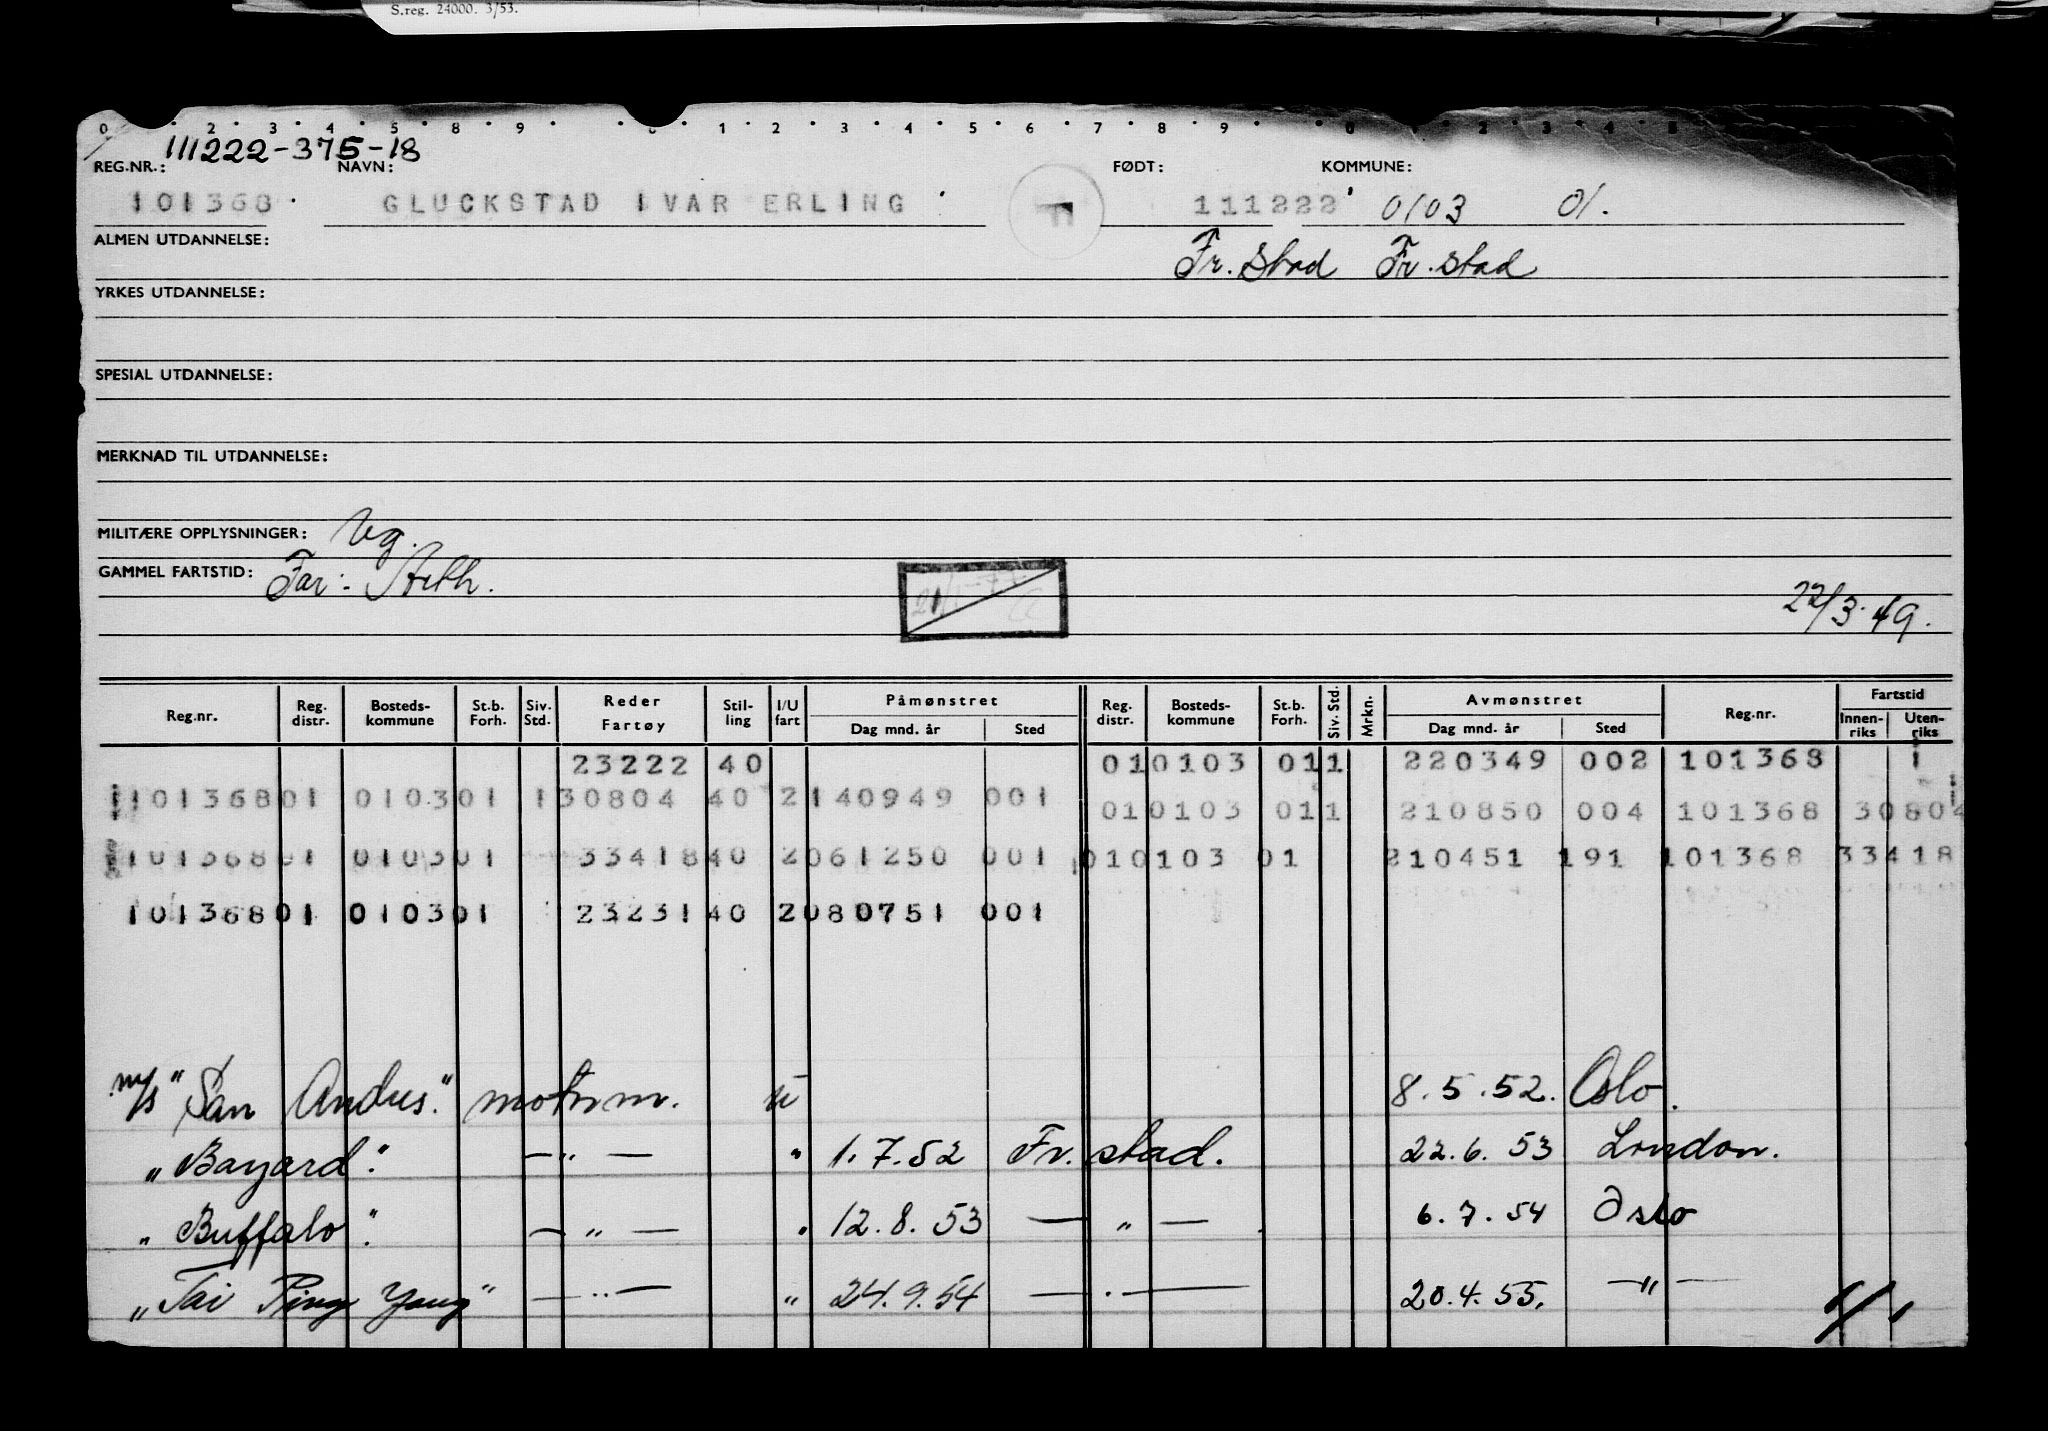 S.reg. 24000. 3/53.
0 2 3 4 5 8 9 1 2 3 4 5 6 7 8 9 0 2 3 4 5
111222-375-18
REG.NR.: NAVN: FØDT: KOMMUNE:
101368. GLUCKSTAD IVAR ERLING 111222 0103 01.
ALMEN UTDANNELSE: Fr. stad Fr. stad
YRKES UTDANNELSE:
SPESIAL UTDANNELSE:
MERKNAD TIL UTDANNELSE:
MILITÆRE OPPLYSNINGER: Ug.
GAMMEL FARTSTID: Far:
22/3.49.
Reg.nr. Reg. distr. Bosteds- kommune St.b. Forh. Siv. Std. Reder Fartøy Stil- ling I/U fart Påmønstret Dag mnd. år Sted Reg. distr. Bosteds- kommune St.b. Forh. Siv. Std. Mrkn. Avmønstret Dag mnd. år Sted Reg.nr. Fartstid Innen- riks Uten- riks
23222 40 010103 011 220349 002 101368 1
10136801 010301 130804 40 2140949 001 010103 011 210850 004 101368 30804
10136801 010301 33418 40 2061250 001 010103 01 210451 191 101368 33418
10136801 010301 23231 40 2080751 001
m/s "San Andres." motorm. u 8.5.52. Oslo.
" Bayard". —"— " 1.7.52 Fr. stad. 22.6.53 London.
" Buffalo". —"— " 12.8.53 —"— 6.7.54 Oslo
" Tai Ping Yang" —"— " 24.9.54 —"— 20.4.55. —"—